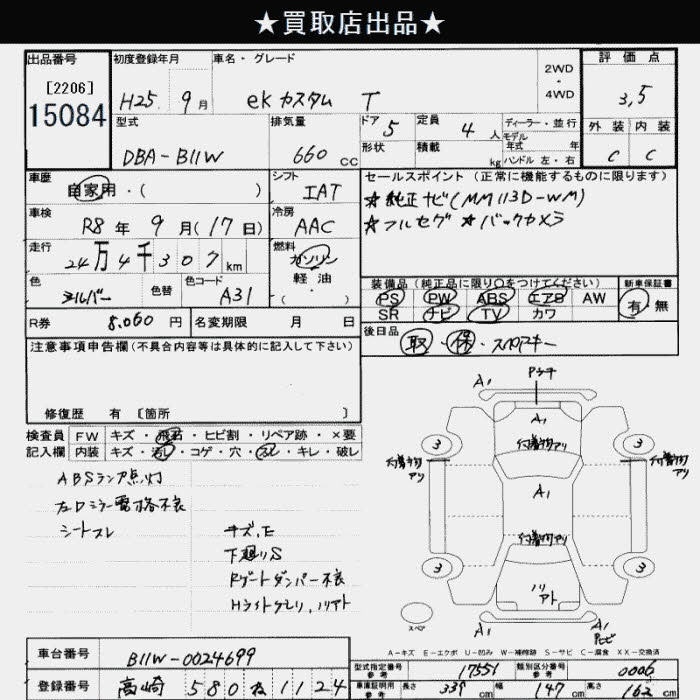 ★買取店出品★
出品番号
[2206]
15084
初度登録年月
H25. 9月
車名・グレード
ekカスタム T
2WD
・
4WD
評価点
3,5
外装 内装
C C
型式
DBA-B11W
排気量
660 CC
ドア 5
形状
定員 4 人
積載 kg
ディーラー・並行
モデル
年式 年
ハンドル 左・右
車歴
自家用・( )
シフト
IAT
車検
R8年 9月(17日)
冷房
AAC
走行
24万4千307km
燃料
ガソリン
軽油
( )
色
シルバー
色替
色コード
A31
R券 8.060 円
名変期限 月 日
セールスポイント (正常に機能するものに限ります)
★純正ナビ(MM113D-WM)
★フルセグ ★バックカメラ
装備品 (純正品に限り○をつけてください)
PS PW ABS エアB AW
SR ナビ TV カワ
新車保証書
有・無
後日品
取・保・スペアキー
注意事項申告欄(不具合内容等は具体的に記入して下さい)
修復歴 有 〔箇所 〕
検査員
記入欄
FW キズ・飛石・ヒビ割・リペア跡・×要
内装 キズ・汚レ・コゲ・穴・スレ・キレ・破レ
ABSランプ点灯
左Dミラー電格不良
シートスレ
キズ.E
下廻りS
Rゲートダンパー不良
Hライトクモリ、ノリアト
A1 Pキチ
A1
付着物アリ
3 3
付着物アリ
付着物アリ
A1
付着物アリ
3 3
ノリアト
スペア
A1 A1
A-キズ E-エクボ U-凹み W-補修跡 S-サビ C-腐食 XX-交換済
車台番号
B11W-0024699
登録番号
高崎 580 ね 1124
型式指定番号
参考
17551
類別区分番号
参考
0006
車庫証明用
参考
長さ 339 cm
幅 147 cm
高さ 162 cm